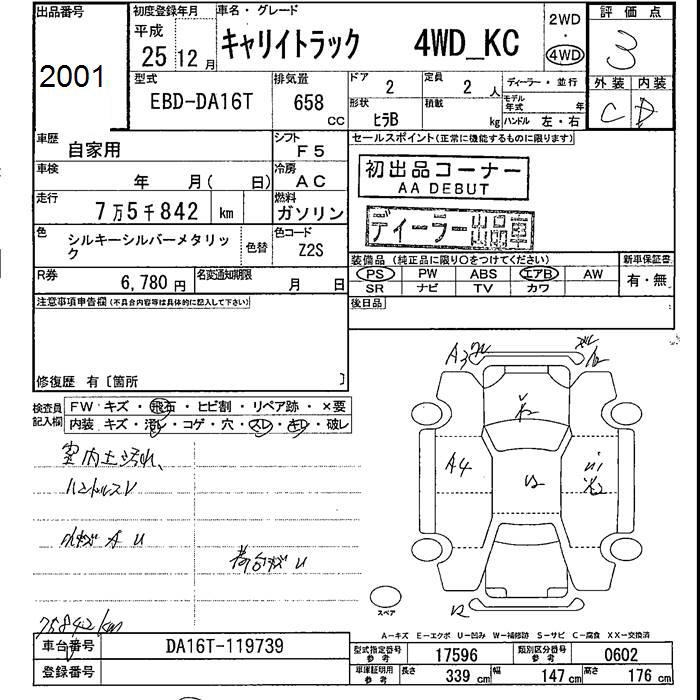 出品番号
2001
初度登録年月
平成
25 12 月
車名・グレード
キャリイトラック 4WD_KC
2WD
・
4WD
評価点
3
外装 内装
C D
型式
EBD-DA16T
排気量
658
CC
ドア
2
定員
2 人
ディーラー・並行
形状
ヒラB
積載
kg
モデル年式 年
ハンドル 左・右
車歴
自家用
シフト
F5
セールスポイント(正常に機能するものに限ります)
車検
年 月( 日)
冷房
AC
初出品コーナー
AA DEBUT
走行
7万5千842 km
燃料
ガソリン
ディーラー出品車
色
シルキーシルバーメタリック
色替
色コード
Z2S
装備品(純正品に限り○をつけてください)
新車保証書
PS PW ABS エアB AW
SR ナビ TV カワ
有・無
R券
6,780 円
名変通知期限
月 日
後日品
注意事項申告欄(不具合内容等は具体的に記入して下さい)
修復歴 有〔箇所 〕
検査員記入欄
FW キズ・飛石・ヒビ割・リペア跡・×要
内装 キズ・汚レ・コゲ・穴・スレ・キレ・破レ
室内土汚れ、
ハンドルスレ
A U
荷台 U
75842km
A3
A4
スペア
A-キズ E-エクボ U-凹み W-補修跡 S-サビ C-腐食 XX-交換済
車台番号
DA16T-119739
登録番号
型式指定番号 参考
17596
類別区分番号 参考
0602
車庫証明用 参考
長さ 339 cm
幅 147 cm
高さ 176 cm